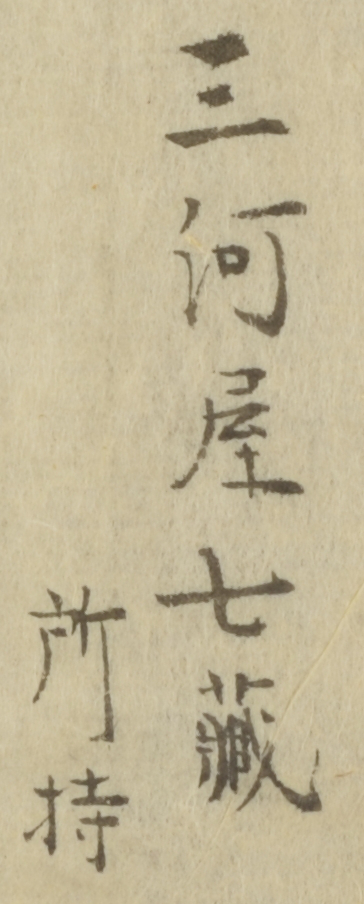 三河屋七藏
所持